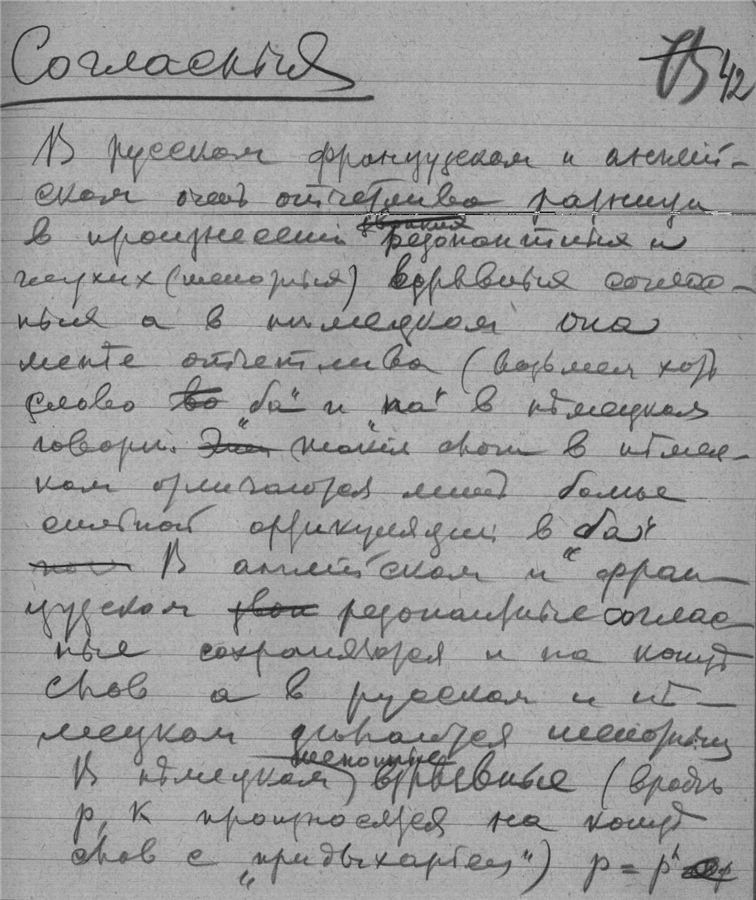 Согласныя
42
В русском французском и англий-
ском очень отчетлива разница
в произнесении резонантныя и
глухих (шепотныя) взрывныя соглас-
ныя а в нимецком она
менте отчетлива (возьмем хоть
слово ба" и "па" в нѣмецком
говори. в нѣмец-
ком отличаются лишь более
сильной артикуляции в "ба"
В английском и фран-
цузском резонантные соглас
ные сохраняются и на концѣ
слов а в русском и нѣ-
мецком
шепотные
В нѣмецком) взрывные (вродѣ
р, к произносятся на концѣ
слов с "придыхартем") р = р'